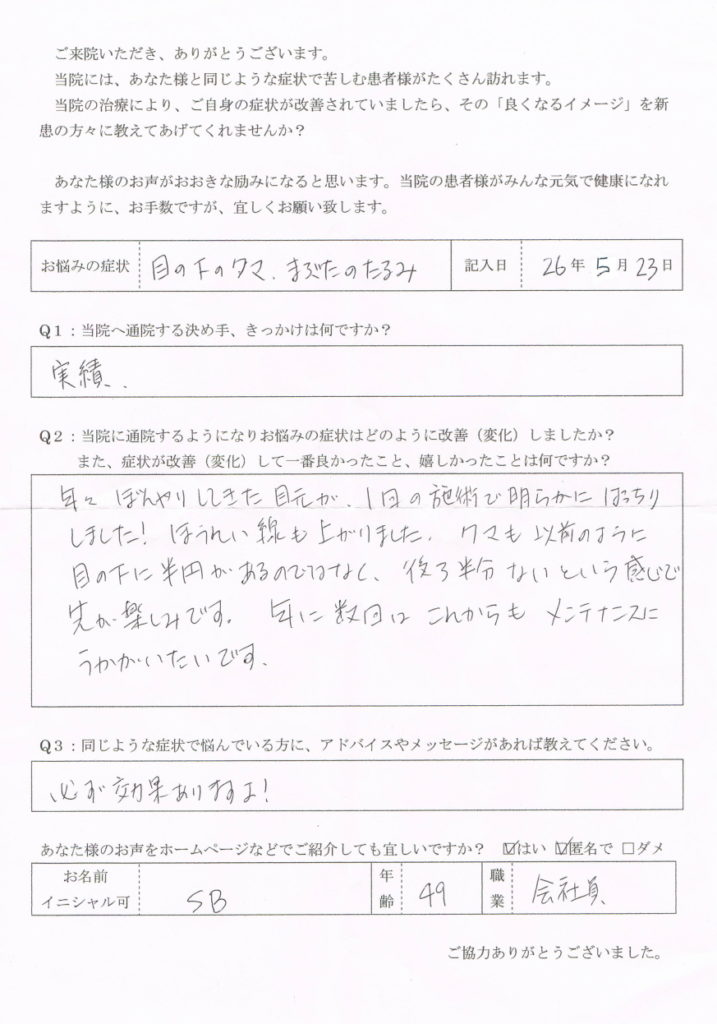 ご来院いただき、ありがとうございます。
当院には、あなた様と同じような症状で苦しむ患者様がたくさん訪れます。
当院の治療により、ご自身の症状が改善されていましたら、その「良くなるイメージ」を新
患の方々に教えてあげてくれませんか？
あなた様のお声がおおきな励みになると思います。当院の患者様がみんな元気で健康になれ
ますように、お手数ですが、宜しくお願い致します。
お悩みの症状 目の下のクマ、まぶたのたるみ 記入日 26年 5月 23日
Q1：当院へ通院する決め手、きっかけは何ですか？
実績、
Q2：当院に通院するようになりお悩みの症状はどのように改善（変化）しましたか？
また、症状が改善（変化）して一番良かったこと、嬉しかったことは何ですか？
年々 ぼんやりしてきた目元が、1回の施術で明らかに ぱっちり
しました! ほうれい線も上がりました。 クマも以前のように
目の下に半円があるのではなく、後ろ半分ないという感じで
先が楽しみです。 年に数回は これからも メンテナンスに
うかがいたいです。
Q3：同じような症状で悩んでいる方に、アドバイスやメッセージがあれば教えてください。
必ず効果ありますよ!
あなた様のお声をホームページなどでご紹介しても宜しいですか？ ☑はい ☑匿名で □ダメ
お名前
イニシャル可 SB 年齢 49 職業 会社員
ご協力ありがとうございました。